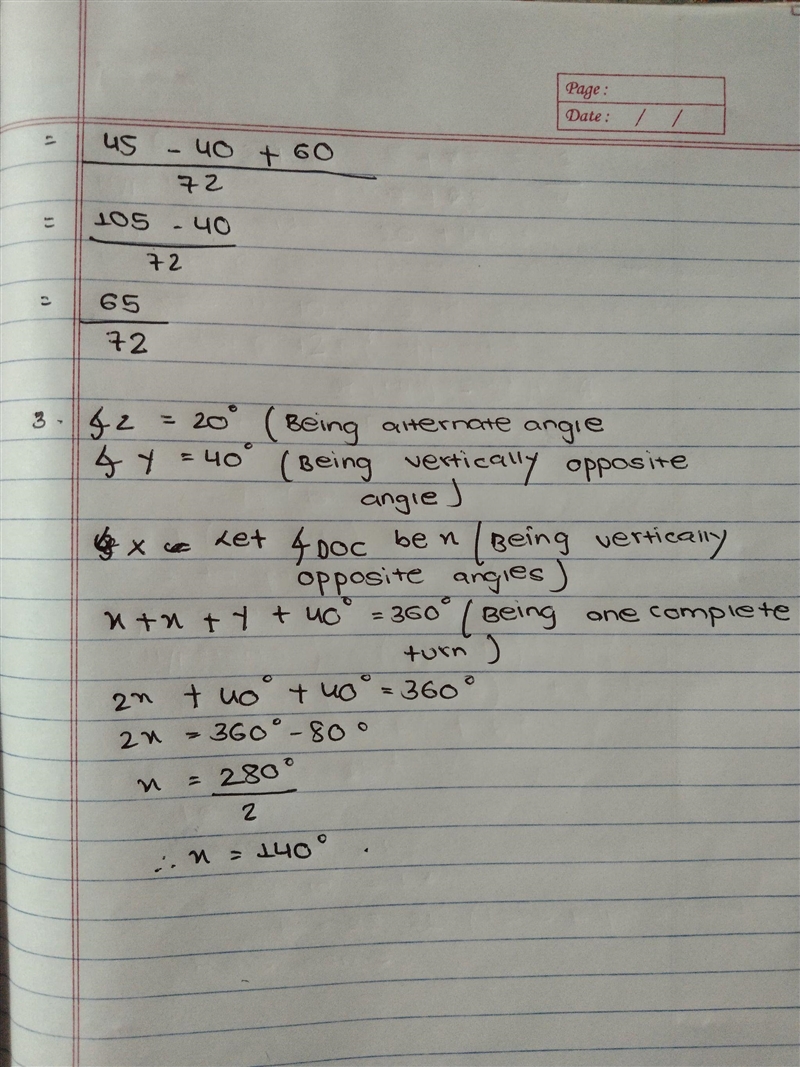 Page :
Date : / /
= 45 - 40 + 60
72
= 105 - 40
72
= 65
72
3. ∡z = 20° (Being alternate angle
∡ y = 40° (Being vertically opposite
angle)
x = Let ∡DOC be x (Being vertically
opposite angles)
x + x + y + 40° = 360° (Being one complete
turn)
2x + 40° + 40° = 360°
2x = 360° - 80°
x = 280°
2
∴ x = 140° .